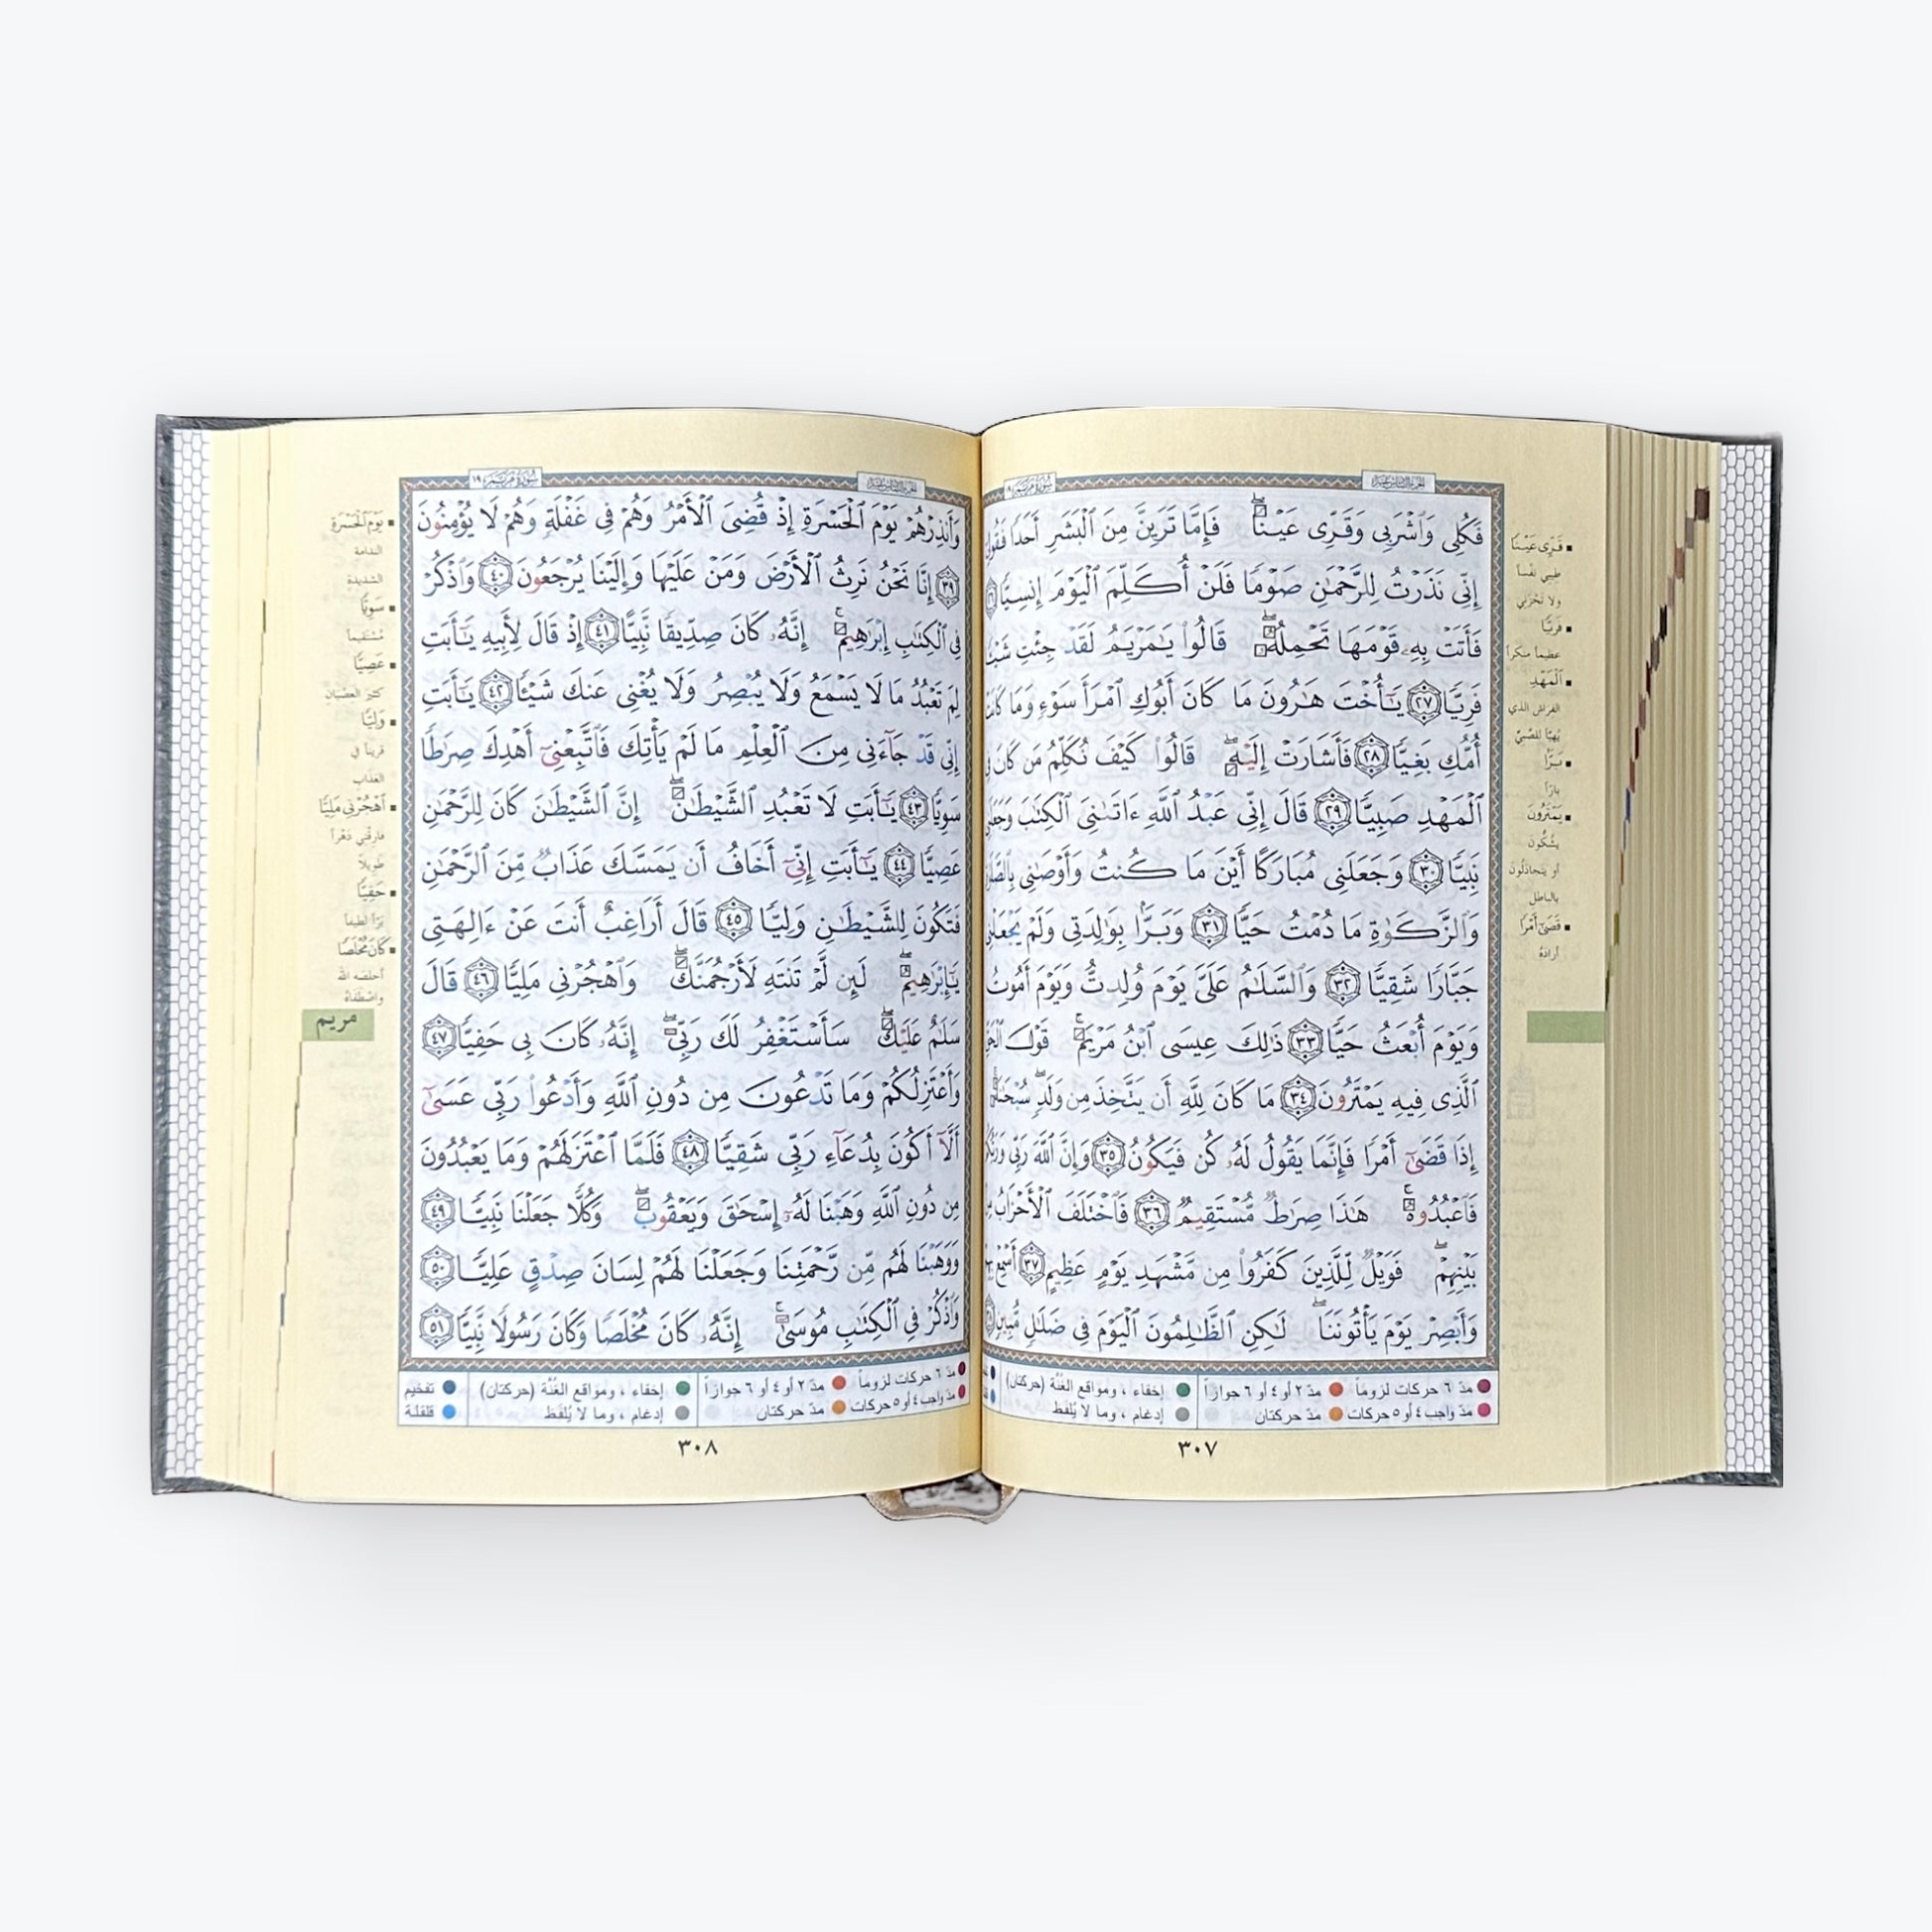 سورة مريم
فَكُلِى وَٱشْرَبِى وَقَرِّى عَيْنًاۖ فَإِمَّا تَرَيِنَّ مِنَ ٱلْبَشَرِ أَحَدًا
إِنِّى نَذَرْتُ لِلرَّحْمَٰنِ صَوْمًا فَلَنْ أُكَلِّمَ ٱلْيَوْمَ إِنسِيًّا
فَأَتَتْ بِهِۦ قَوْمَهَا تَحْمِلُهُۥۖ قَالُوا۟ يَٰمَرْيَمُ لَقَدْ جِئْتِ
فَرِيًّا ٢٧ يَٰٓأُخْتَ هَٰرُونَ مَا كَانَ أَبُوكِ ٱمْرَأَ سَوْءٍ وَمَا
أُمُّكِ بَغِيًّا ٢٨ فَأَشَارَتْ إِلَيْهِۖ قَالُوا۟ كَيْفَ نُكَلِّمُ مَن كَانَ
ٱلْمَهْدِ صَبِيًّا ٢٩ قَالَ إِنِّى عَبْدُ ٱللَّهِ ءَاتَىٰنِىَ ٱلْكِتَٰبَ
نَبِيًّا ٣٠ وَجَعَلَنِى مُبَارَكًا أَيْنَ مَا كُنتُ وَأَوْصَٰنِى
وَٱلزَّكَوٰةِ مَا دُمْتُ حَيًّا ٣١ وَبَرًّۢا بِوَٰلِدَتِى وَلَمْ
جَبَّارًا شَقِيًّا ٣٢ وَٱلسَّلَٰمُ عَلَىَّ يَوْمَ وُلِدتُّ وَيَوْمَ أَمُوتُ
وَيَوْمَ أُبْعَثُ حَيًّا ٣٣ ذَٰلِكَ عِيسَى ٱبْنُ مَرْيَمَۚ قَوْلَ
ٱلَّذِى فِيهِ يَمْتَرُونَ ٣٤ مَا كَانَ لِلَّهِ أَن يَتَّخِذَ مِن وَلَدٍۖ
إِذَا قَضَىٰٓ أَمْرًا فَإِنَّمَا يَقُولُ لَهُۥ كُن فَيَكُونُ ٣٥ وَإِنَّ ٱللَّهَ رَبِّى
فَٱعْبُدُوهُۚ هَٰذَا صِرَٰطٌ مُّسْتَقِيمٌ ٣٦ فَٱخْتَلَفَ ٱلْأَحْزَابُ
بَيْنِهِمْۖ فَوَيْلٌ لِّلَّذِينَ كَفَرُوا۟ مِن مَّشْهَدِ يَوْمٍ عَظِيمٍ ٣٧ أَسْمِعْ
وَأَبْصِرْ يَوْمَ يَأْتُونَنَاۖ لَٰكِنِ ٱلظَّٰلِمُونَ ٱلْيَوْمَ فِى ضَلَٰلٍ مُّبِينٍ
قَرِّى عَيْنًا
طيبي نفساً
ولا تحزني
فَرِيًّا
عظيماً منكراً
ٱلْمَهْدِ
الفراش الذي
يُهيّأ للصّبيّ
بَرًّا
بارّاً
يَمْتَرُونَ
يشكّون
أو يتجادلون
بالباطل
قَضَىٰ أَمْرًا
أراده
مدّ ٦ حركات لزوماً مدّ ٢ أو ٤ أو ٦ جوازاً إخفاء ، ومواقع الغُنّة (حركتان)
مدّ واجب ٤ أو ٥ حركات مدّ حركتان إدغام ، وما لا يُلفظ
٣٠٧
سورة مريم ١٩
وَأَنذِرْهُمْ يَوْمَ ٱلْحَسْرَةِ إِذْ قُضِىَ ٱلْأَمْرُ وَهُمْ فِى غَفْلَةٍ وَهُمْ لَا يُؤْمِنُونَ
٣٩ إِنَّا نَحْنُ نَرِثُ ٱلْأَرْضَ وَمَنْ عَلَيْهَا وَإِلَيْنَا يُرْجَعُونَ ٤٠ وَٱذْكُرْ
فِى ٱلْكِتَٰبِ إِبْرَٰهِيمَۚ إِنَّهُۥ كَانَ صِدِّيقًا نَّبِيًّا ٤١ إِذْ قَالَ لِأَبِيهِ يَٰٓأَبَتِ
لِمَ تَعْبُدُ مَا لَا يَسْمَعُ وَلَا يُبْصِرُ وَلَا يُغْنِى عَنكَ شَيْـًٔا ٤٢ يَٰٓأَبَتِ
إِنِّى قَدْ جَآءَنِى مِنَ ٱلْعِلْمِ مَا لَمْ يَأْتِكَ فَٱتَّبِعْنِىٓ أَهْدِكَ صِرَٰطًا
سَوِيًّا ٤٣ يَٰٓأَبَتِ لَا تَعْبُدِ ٱلشَّيْطَٰنَۖ إِنَّ ٱلشَّيْطَٰنَ كَانَ لِلرَّحْمَٰنِ
عَصِيًّا ٤٤ يَٰٓأَبَتِ إِنِّىٓ أَخَافُ أَن يَمَسَّكَ عَذَابٌ مِّنَ ٱلرَّحْمَٰنِ
فَتَكُونَ لِلشَّيْطَٰنِ وَلِيًّا ٤٥ قَالَ أَرَاغِبٌ أَنتَ عَنْ ءَالِهَتِى
يَٰٓإِبْرَٰهِيمُۖ لَئِن لَّمْ تَنتَهِ لَأَرْجُمَنَّكَۖ وَٱهْجُرْنِى مَلِيًّا ٤٦ قَالَ
سَلَٰمٌ عَلَيْكَۖ سَأَسْتَغْفِرُ لَكَ رَبِّىٓۖ إِنَّهُۥ كَانَ بِى حَفِيًّا ٤٧
وَأَعْتَزِلُكُمْ وَمَا تَدْعُونَ مِن دُونِ ٱللَّهِ وَأَدْعُوا۟ رَبِّى عَسَىٰٓ
أَلَّآ أَكُونَ بِدُعَآءِ رَبِّى شَقِيًّا ٤٨ فَلَمَّا ٱعْتَزَلَهُمْ وَمَا يَعْبُدُونَ
مِن دُونِ ٱللَّهِ وَهَبْنَا لَهُۥٓ إِسْحَٰقَ وَيَعْقُوبَۖ وَكُلًّا جَعَلْنَا نَبِيًّا ٤٩
وَوَهَبْنَا لَهُم مِّن رَّحْمَتِنَا وَجَعَلْنَا لَهُمْ لِسَانَ صِدْقٍ عَلِيًّا ٥٠
وَٱذْكُرْ فِى ٱلْكِتَٰبِ مُوسَىٰٓۚ إِنَّهُۥ كَانَ مُخْلَصًا وَكَانَ رَسُولًا نَّبِيًّا ٥١
يَوْمَ ٱلْحَسْرَةِ
الندامة
الشديدة
سَوِيًّا
مُستقيماً
عَصِيًّا
كثير العصيان
وَلِيًّا
قريناً في
العذاب
ٱهْجُرْنِى مَلِيًّا
فارقني دهراً
طويلاً
حَفِيًّا
برّاً لطيفاً
كَانَ مُخْلَصًا
أخلصه الله
واصطفاه
مريم
مدّ ٦ حركات لزوماً مدّ ٢ أو ٤ أو ٦ جوازاً إخفاء ، ومواقع الغُنّة (حركتان) تفخيم
مدّ واجب ٤ أو ٥ حركات مدّ حركتان إدغام ، وما لا يُلفظ قلقلة
٣٠٨